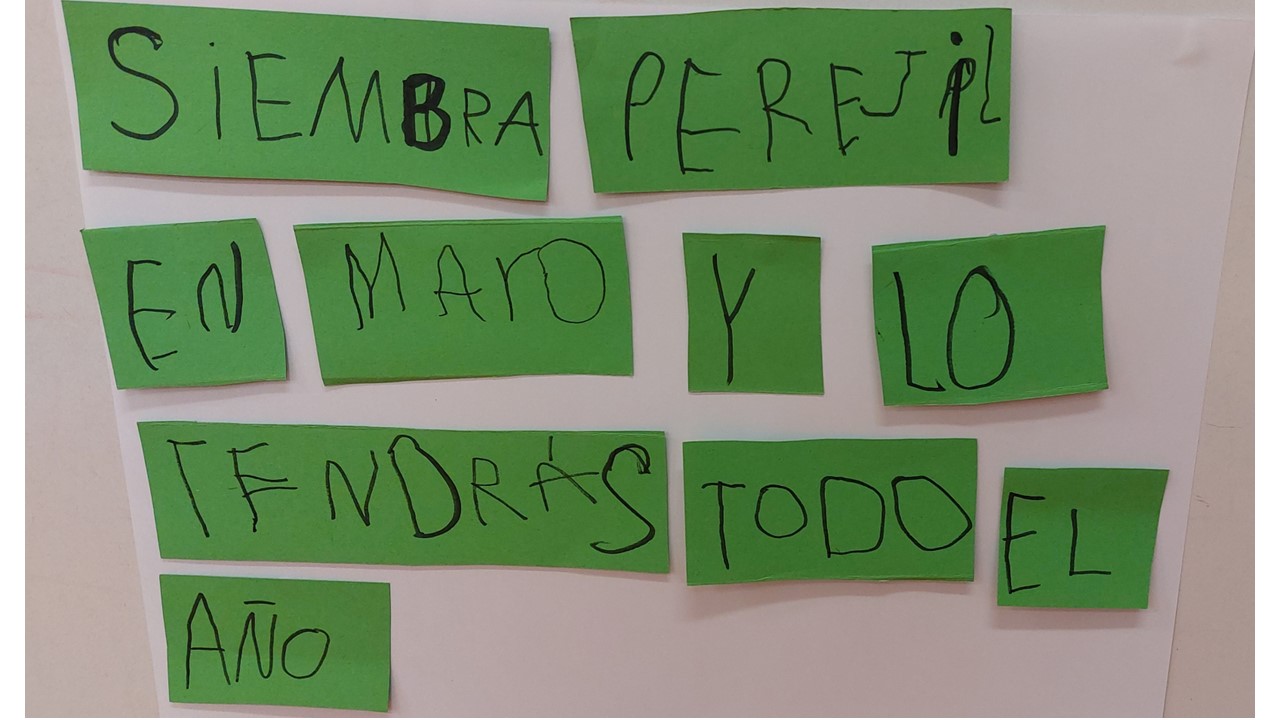 SiEMBRA PEREJiL
EN MAYO Y LO
TENDRÁS TODO EL
AÑO